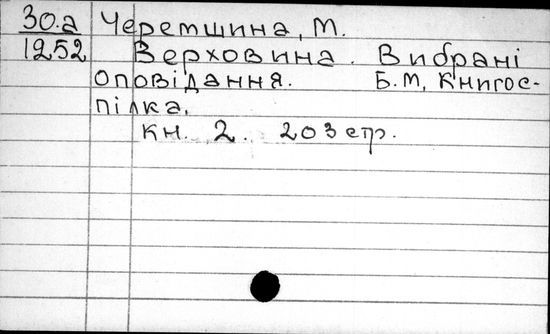 30.а Черемшина, М.
1252 Верховина. Вибрані
оповідання. Б.М, Книгос-
пілка.
кн. 2. 203 стр.